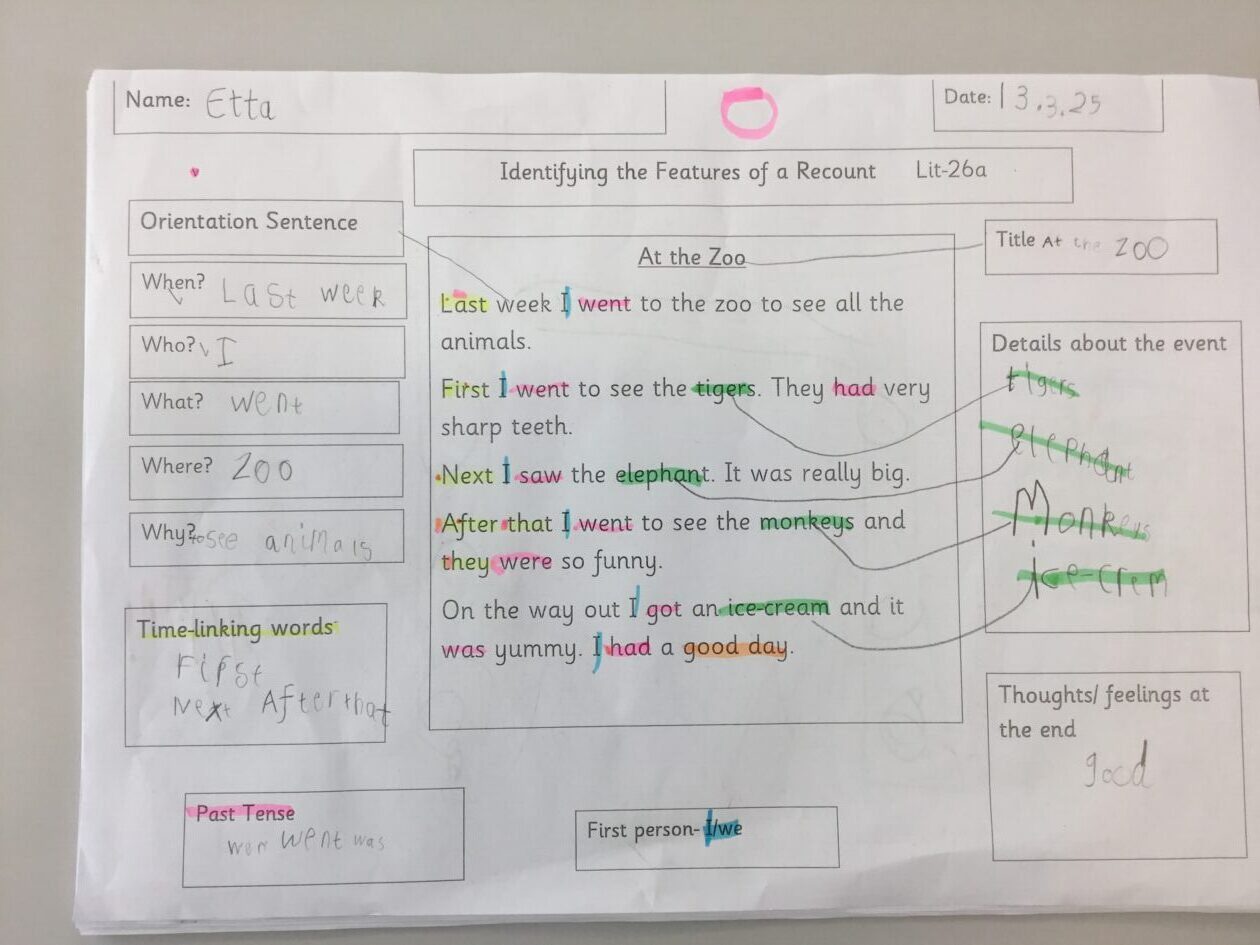 Name: Etta
Date: 13.3.25
Identifying the Features of a Recount Lit-26a
Orientation Sentence
When? Last week
Who? I
What? went
Where? Zoo
Why? to see animals
Time-linking words
First
Next After that
Past Tense
wer went was
At the Zoo
Last week I went to the zoo to see all the
animals.
First I went to see the tigers. They had very
sharp teeth.
Next I saw the elephant. It was really big.
After that I went to see the monkeys and
they were so funny.
On the way out I got an ice-cream and it
was yummy. I had a good day.
First person- I/we
Title At the Zoo
Details about the event
tigers
elephant
Monkeys
ice-crem
Thoughts/ feelings at
the end
good